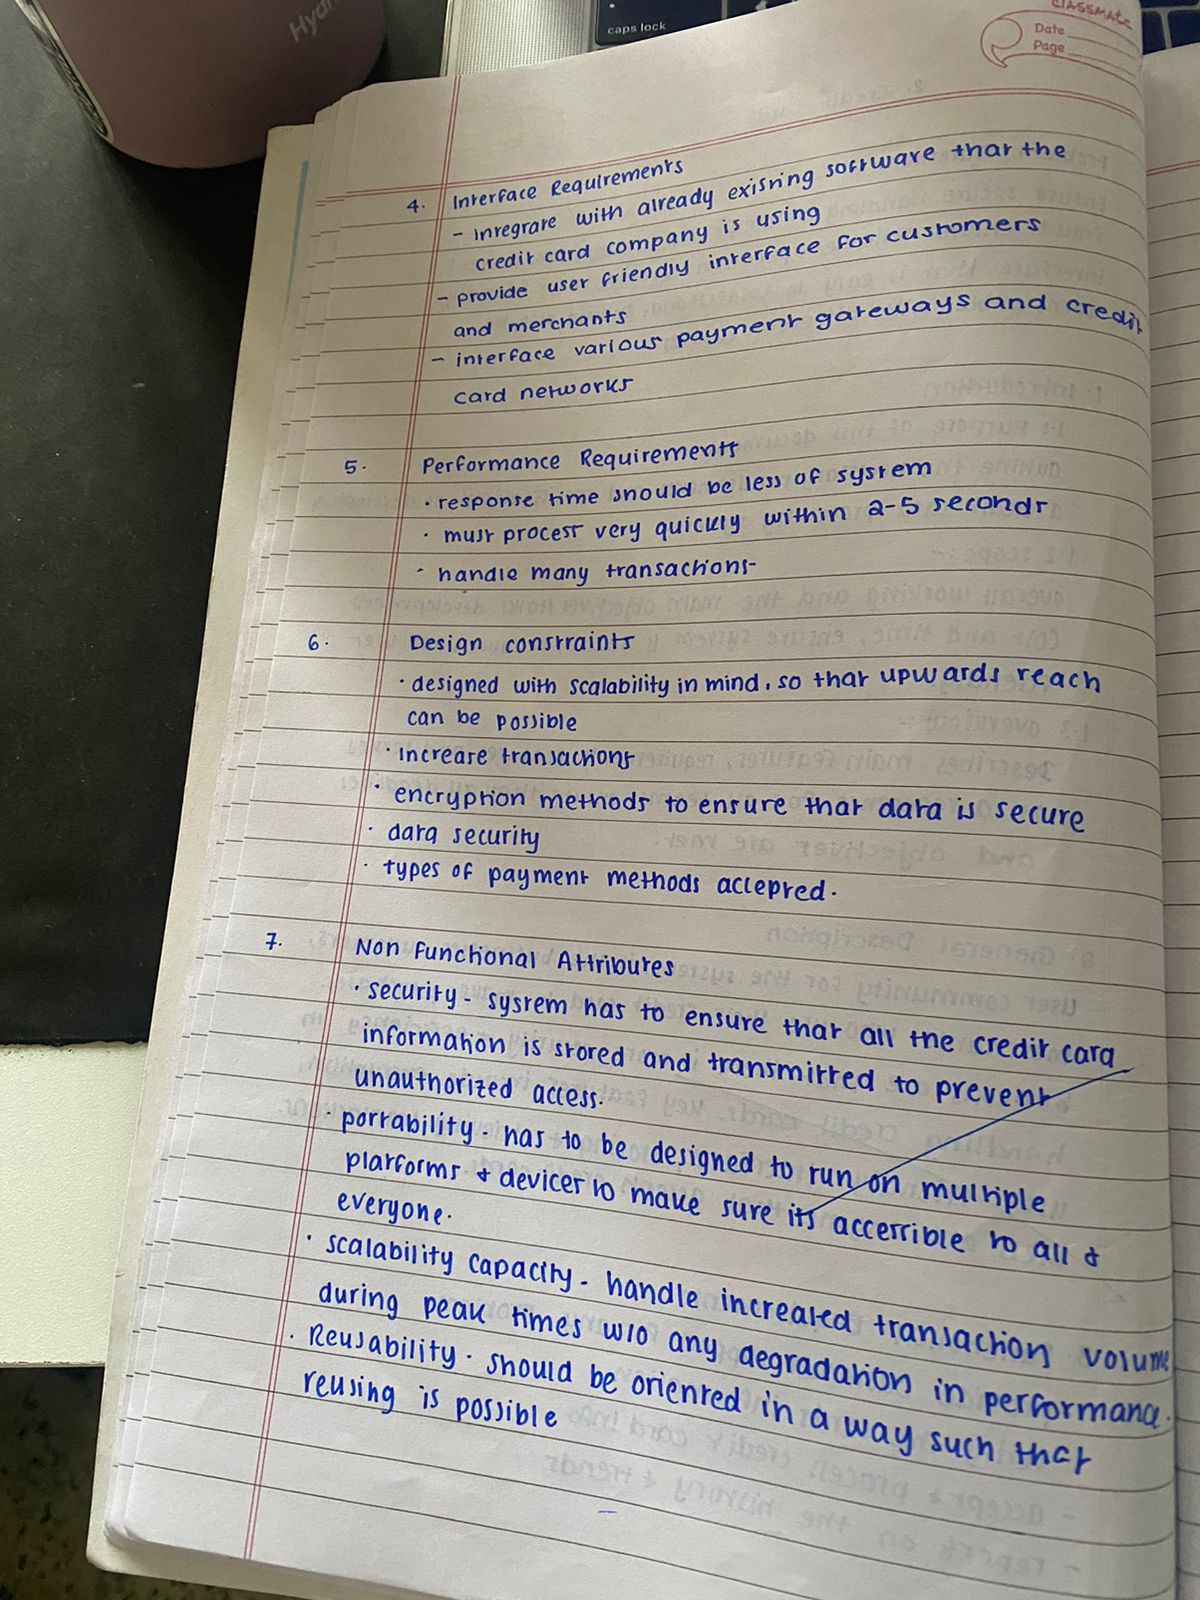 Hydr
caps lock
classmate
Date
Page
4. Interface Requirements
- integrate with already existing software that the
credit card company is using
- provide user friendly interface for customers
and merchants
- interface various payment gateways and credit
card networks
5. Performance Requirements
· response time should be less of system
· must process very quickly within 2-5 seconds
- handle many transactions-
6. Design constraints
· designed with scalability in mind, so that upwards reach
can be possible
· increase transactions
· encryption methods to ensure that data is secure
· data security
· types of payment methods accepted.
7. Non Functional Attributes
· security - system has to ensure that all the credit card
information is stored and transmitted to prevent
unauthorized access.
· portability - has to be designed to run on multiple
platforms & devices to make sure its accessible to all &
everyone.
· scalability capacity - handle increased transaction volume
during peak times w/o any degradation in performance.
· Reusability · should be oriented in a way such that
reusing is possible